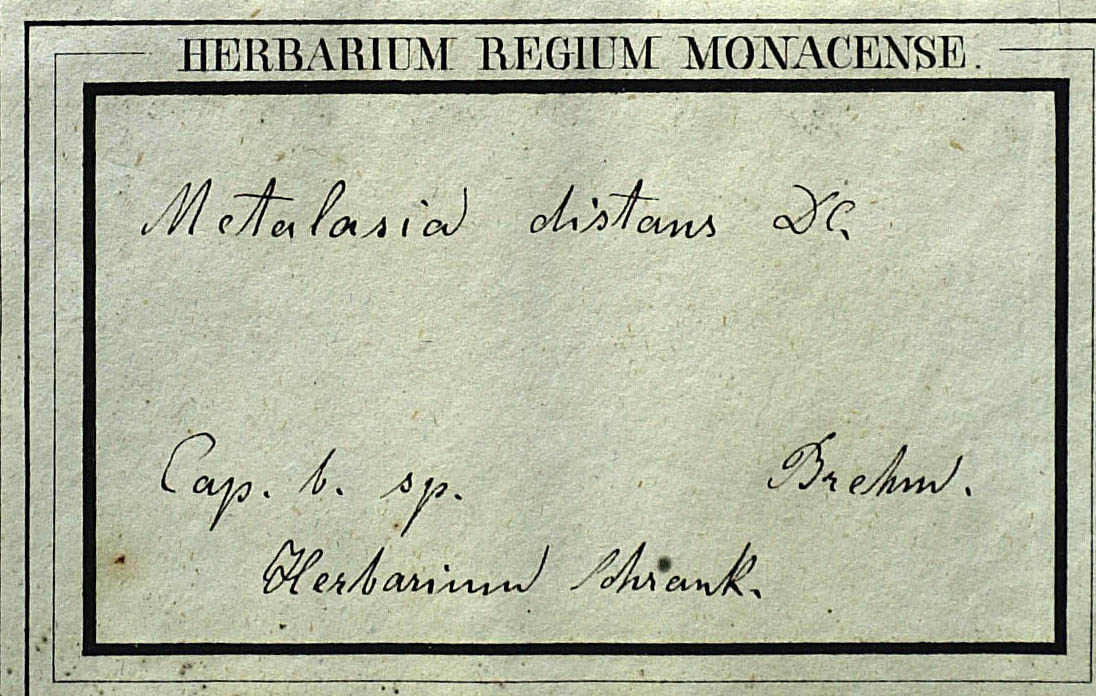 HERBARIUM REGIUM MONACENSE.
Metalasia distans DC.
Cap. b. sp. Brehm.
Herbarium Schrank.